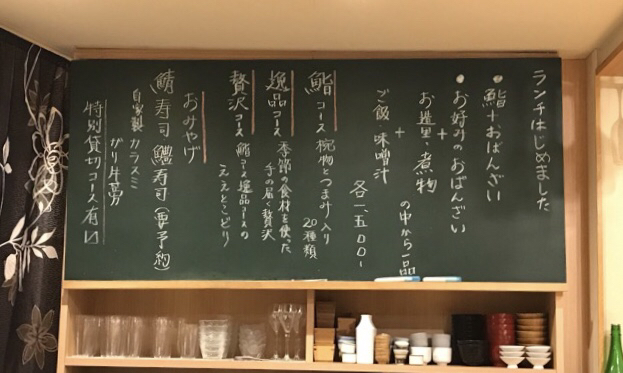 ランチはじめました
• 鮨+おばんざい
• お好みのおばんざい
+
お造里・煮物
の中から一品
+
ご飯 味噌汁
各一、五〇〇-
鮨コース 椀物とつまみ入り
20種類
逸品コース 季節の食材を使った
手の届く贅沢
贅沢コース 鮨コース逸品コースの
ええとこどり
おみやげ
鯖寿司 鱧寿司(要予約)
自家製 カラスミ
がり生姜
特別貸切コース有い